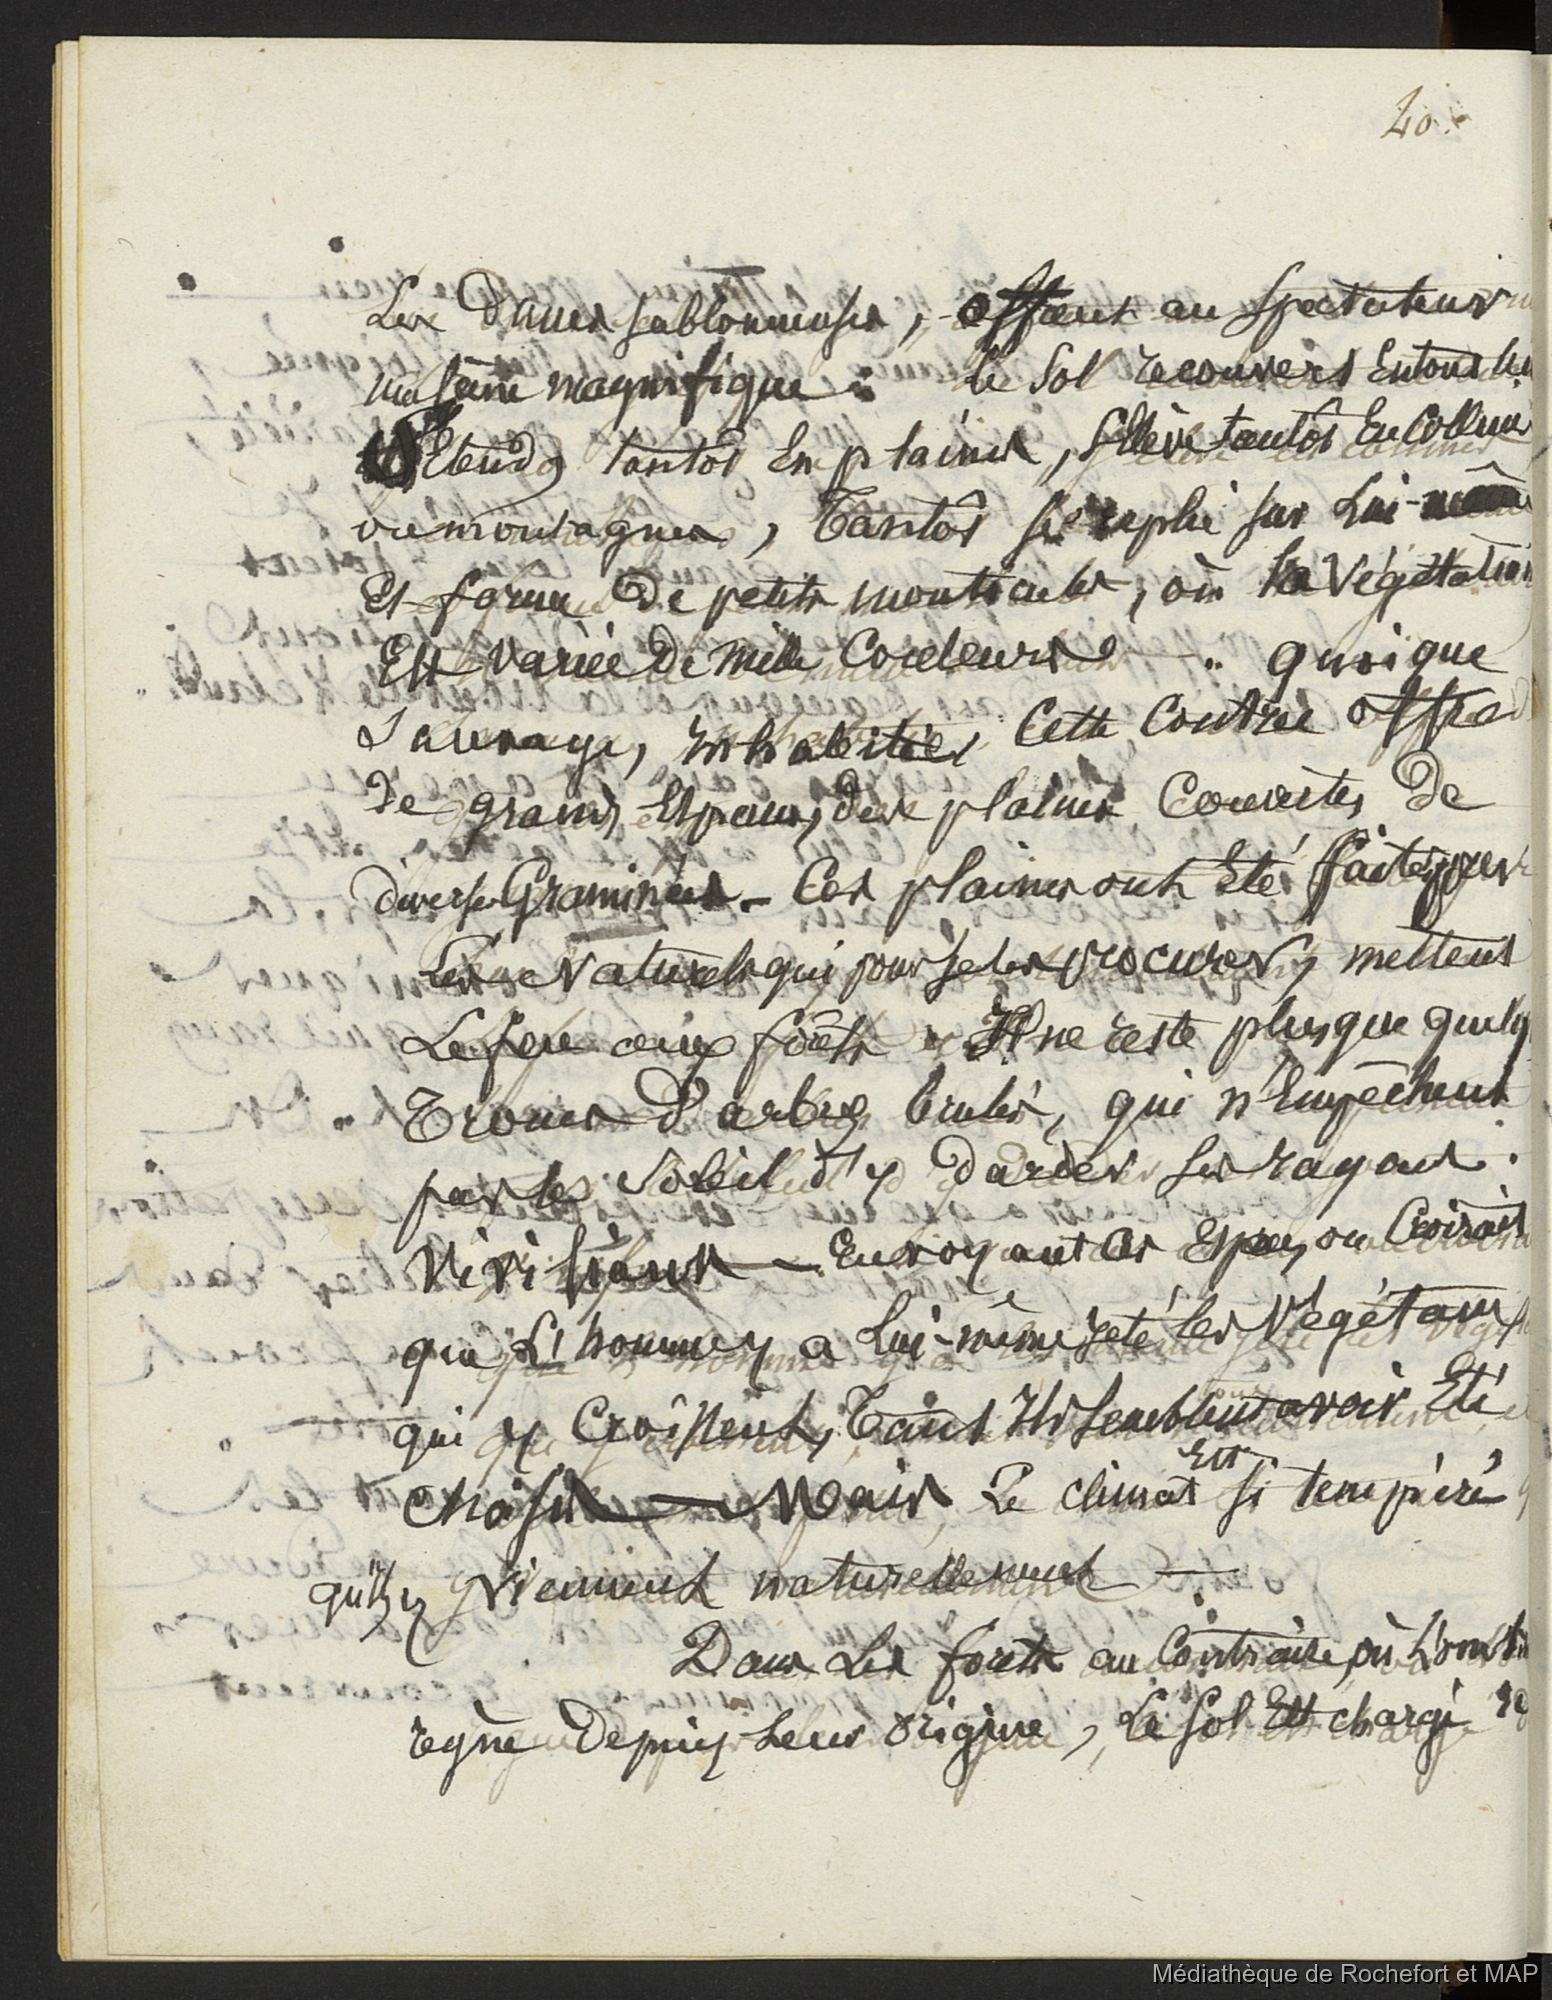 20.
Les Dunes sablonneuses, offrent au Spectateur
une scène magnifique : Le Sol recouvert Entous
S'Etend, tantôt En plaines, s'Elève tantôt En Collines
ou montagnes, Tantôt se replie sur Lui-même
Et forme De petits monticules, où La Végétation
Est variée De mille Couleurs. quoique
Sauvage, Inhabitée, Cette Contrée offre
De grands Espaces, des plaines Couvertes De
diverses Graminées - Ces plaines ont Eté faites par
Les Naturels qui pour se les procurer, y mettent
Le feu aux forêts Il ne reste plus que quelq
Troncs D'arbres brulés, qui n'Empêchent
pas le Soleil d'y Darder ses rayons
Vivifiants — En voyant ces Espaces, on Croirait
que L'homme y a Lui-même jeté les Végétaux
qui y Croissent, Tant Ils semblent avoir Eté
choisis — Mais, Le climat Est si tempéré
qu'ils y Viennent naturellement —
Dans Les forêts au Contraire, où L'ombre
règne Depuis Leur origine, Le Sol Est chargé
Médiathèque de Rochefort et MAP